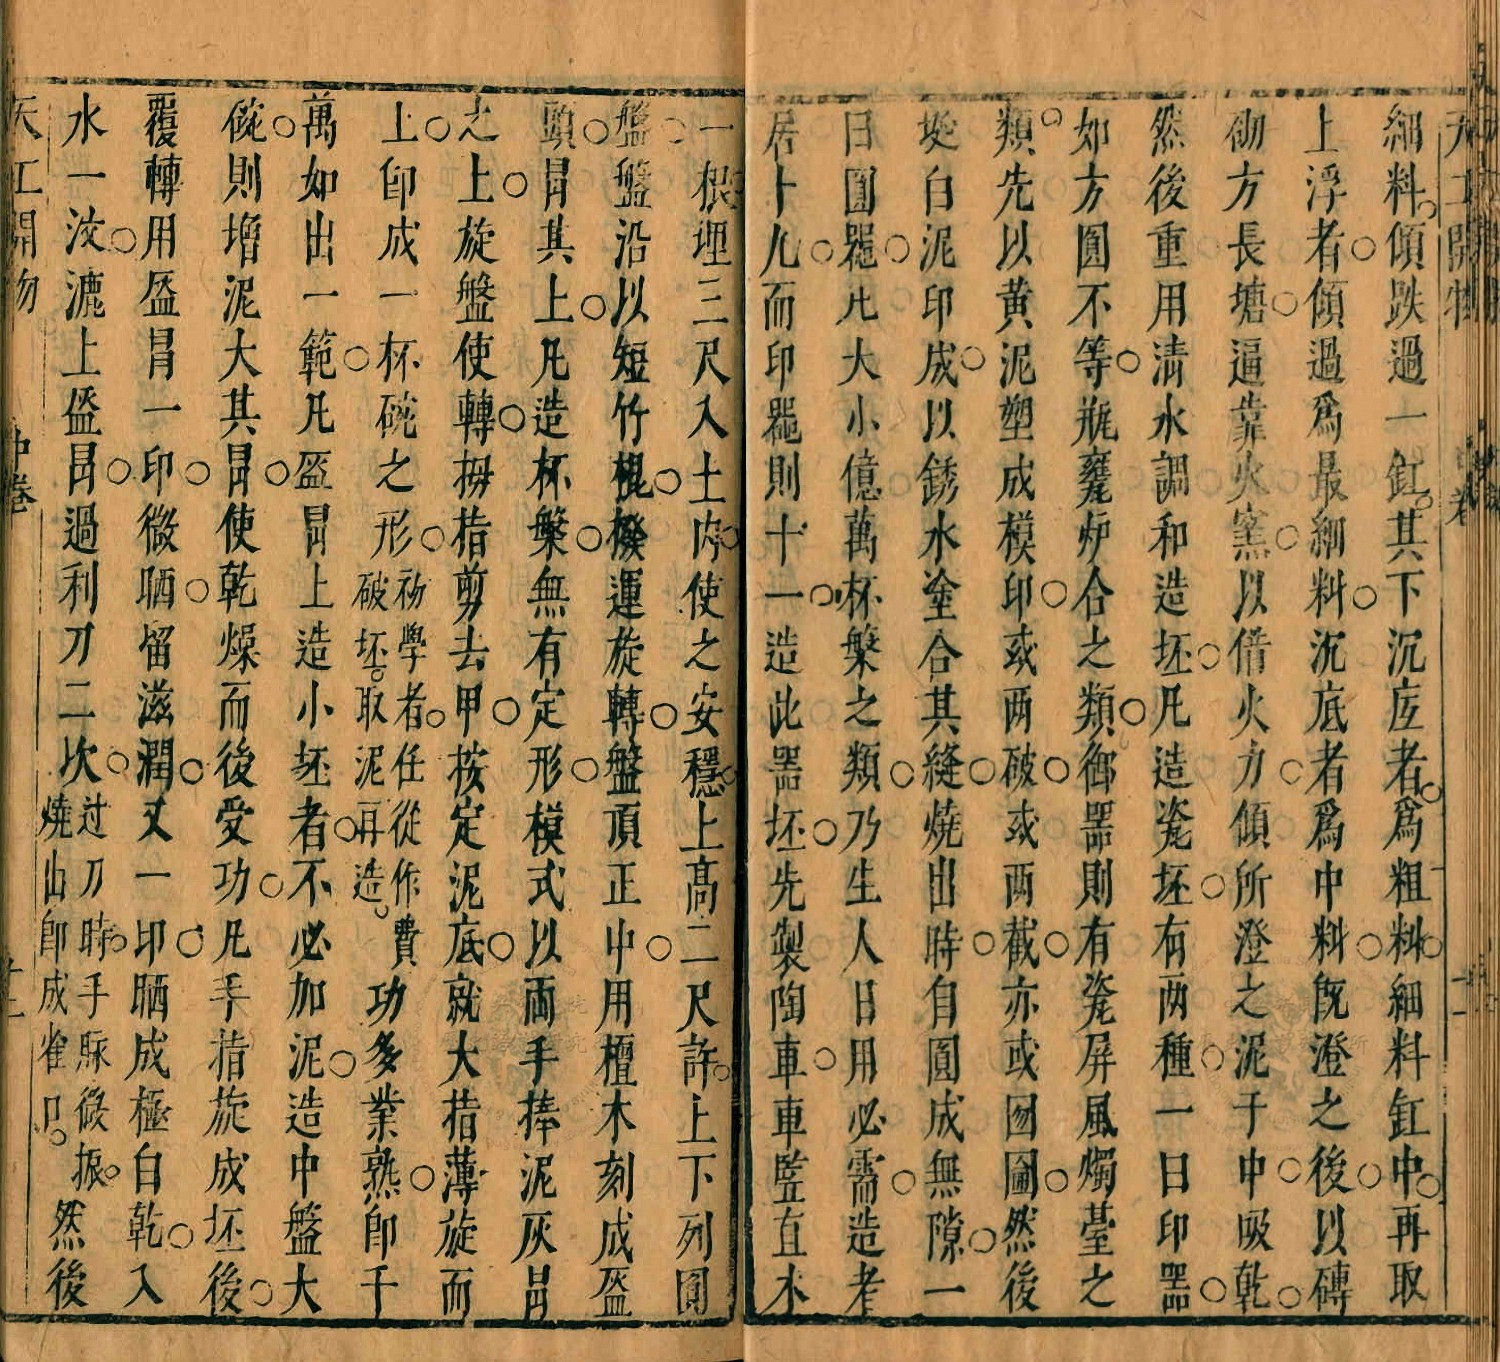 細料傾跌過一缸其下沉底者爲粗料細料缸中再取
上浮者傾過爲最細料沉底者爲中料旣澄之後以磚
砌方長塘逼靠火窯以借火力傾所澄之泥于中吸乾
然後重用清水調和造坯凡造瓷坯有两種一曰印器
如方圓不等瓶甕炉合之類御器則有瓷屏風燭䑓之
類先以黄泥塑成模印或两破或两截亦或囫圇然後
埏白泥印成以銹水塗合其縫燒出時自圓成無隙一
曰圓噐凡大小億萬杯槃之類乃生人日用必需造者
居十九而印噐則十一造此器坯先製陶車車監直木
一根埋三尺入土内使之安穩上高二尺許上下列圓
盤盤沿以短竹棍撥運旋轉盤頂正中用檀木刻成盔
頭冐其上凡造杯槃無有定形模式以兩手捧泥灰冐
之上旋盤使轉拇指剪去甲按定泥底就大指薄旋而
上卽成一杯碗之形初學者任從作費破坯取泥再造功多業熟卽千
萬如出一範凡盔冐上造小坯者不必加泥造中盤大
碗則增泥大其冐使乾燥而後受功凡手指旋成坯後
覆轉用盔冐一印微晒留滋潤又一印晒成極白乾入
水一汶漉上盔冐過利刀二次过刀時手脉微振燒出卽成雀口然後
天工開物 中卷